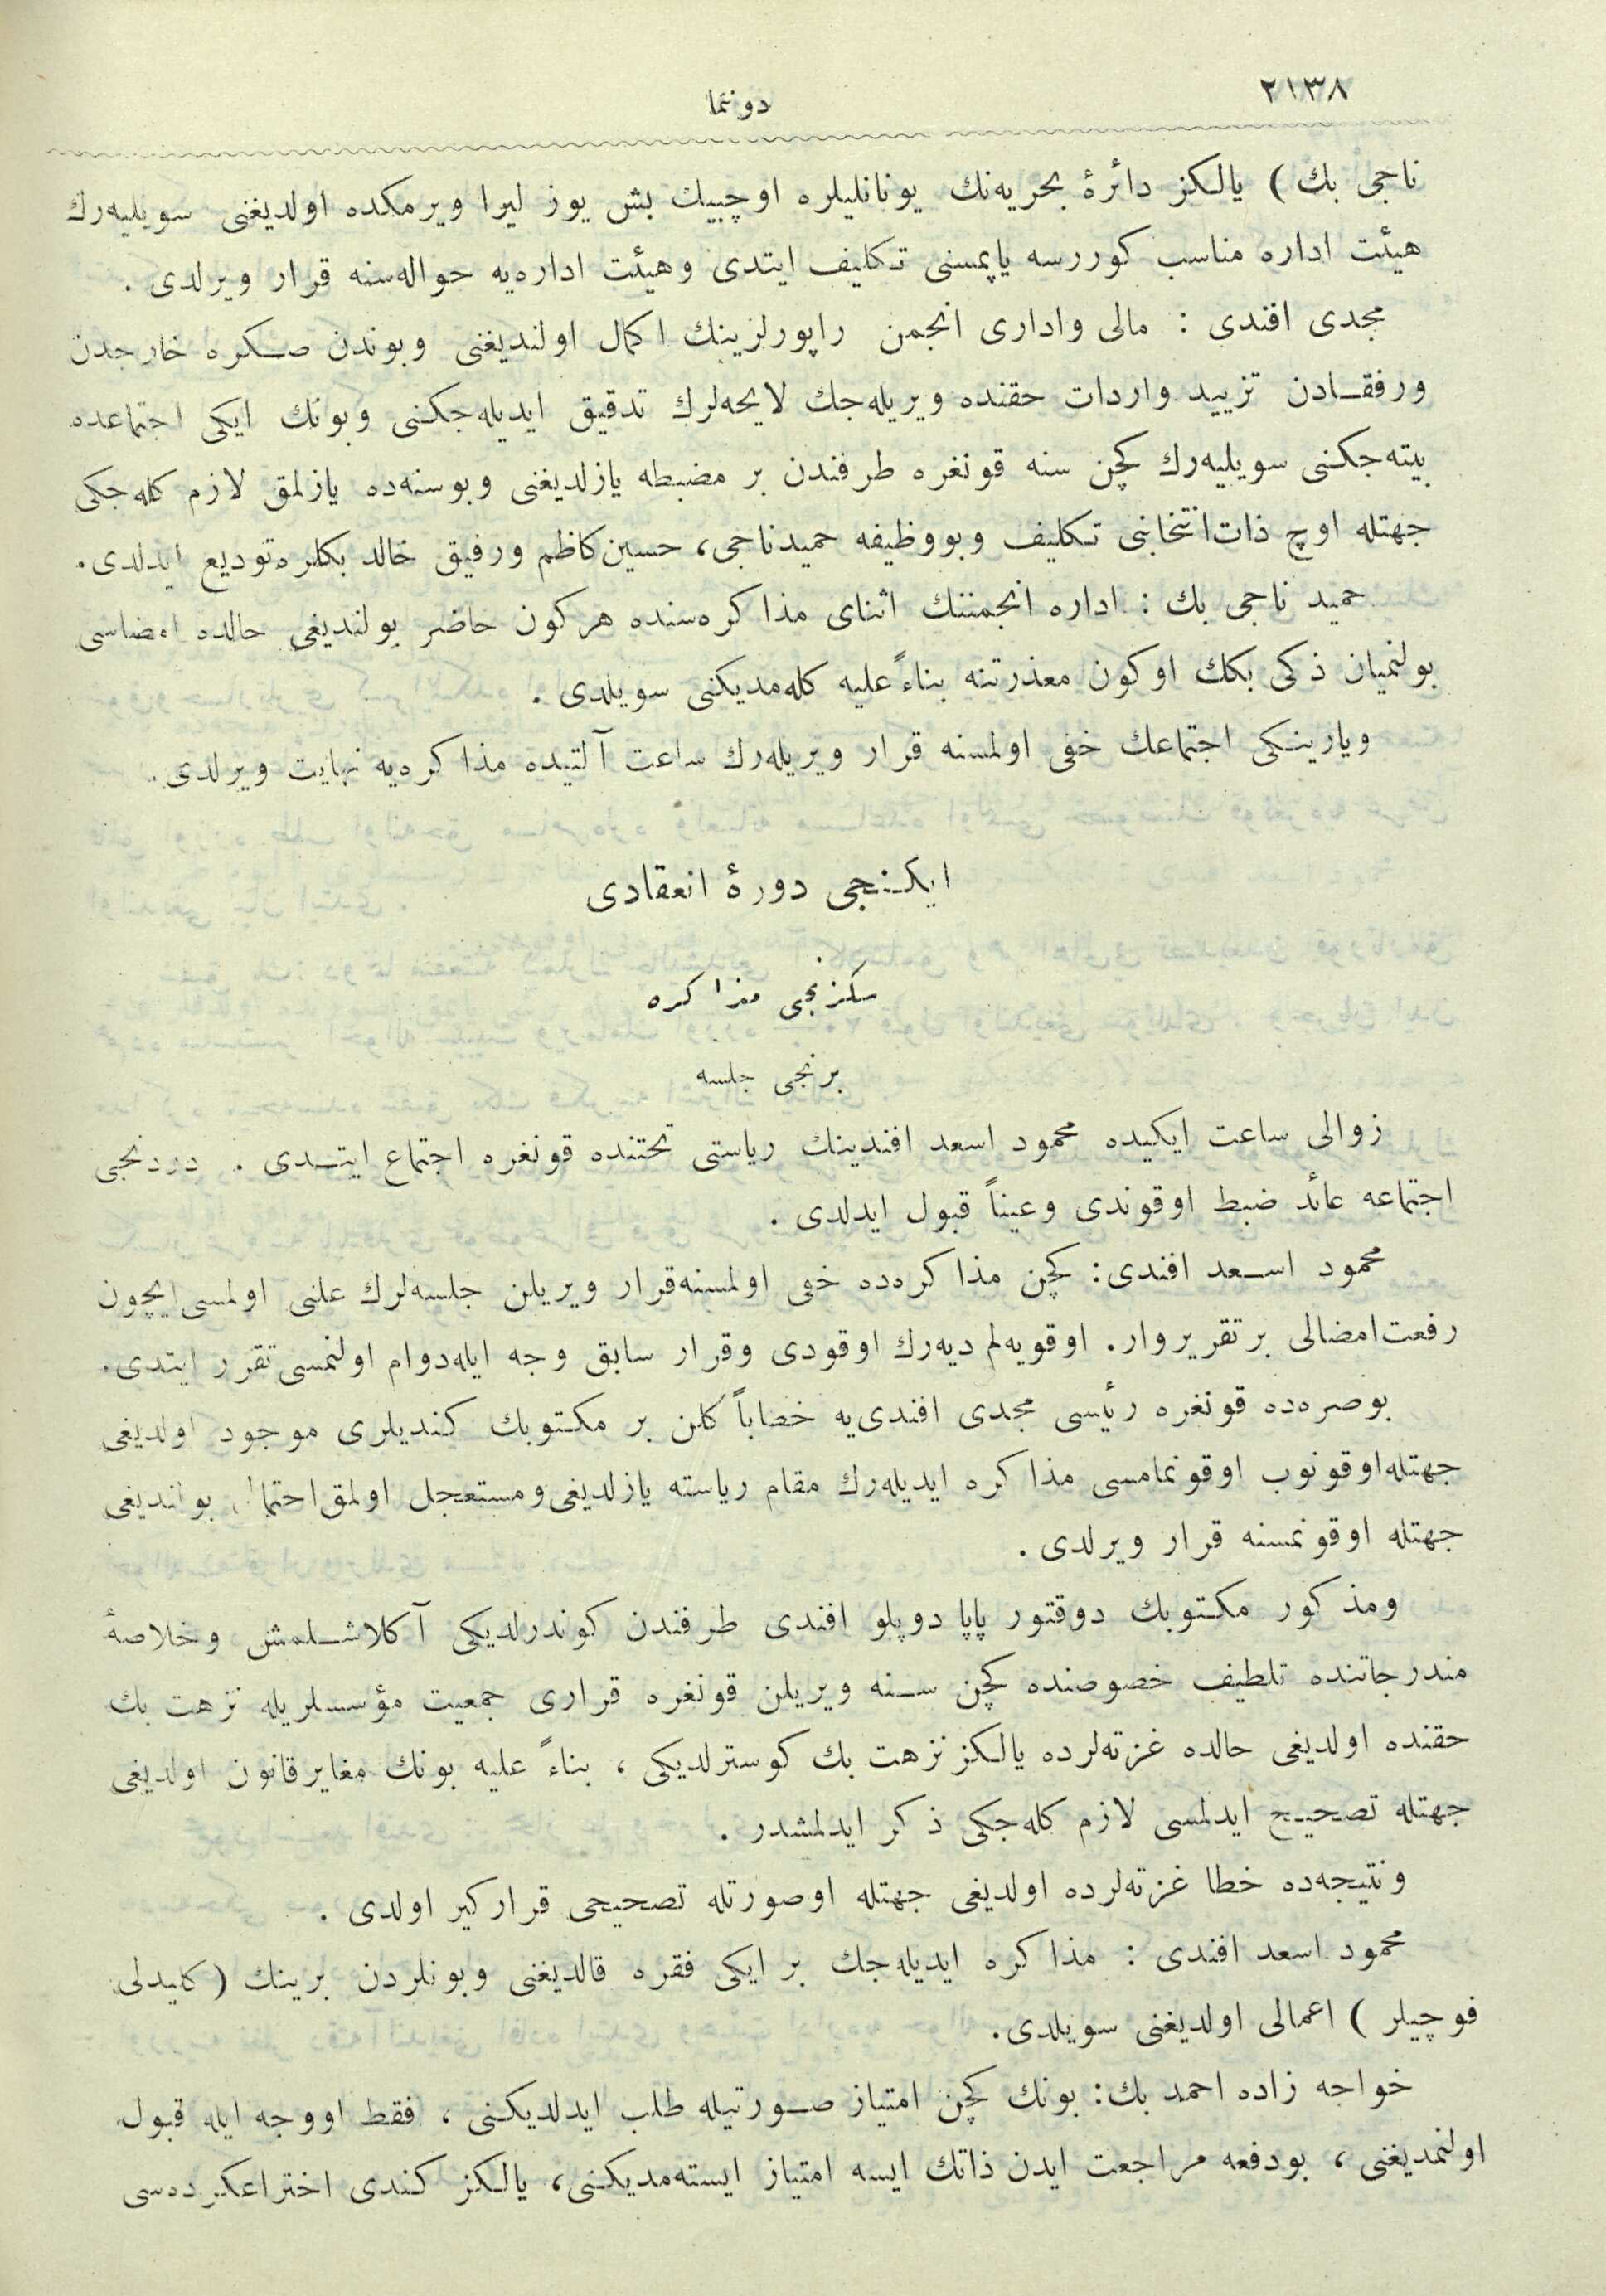 ٢١٣٨
دوننما
ناجی بك) يالكز دائرهٔ بحريه‌نك يونانليلره اوچبيك بش يوز ليرا ويرمكده اولديغنی سويليه‌رك
هيئت اداره مناسب كوررسه ياپمسنی تكليف ايتدی وهيئت اداره‌يه حواله‌سنه قرار ويرلدی .
مجدی افندی : مالی واداری انجمن راپورلزينك اكمال اولنديغنی وبوندن صكره خارجدن
ورفقادن تزييد واردات حقنده ويريله‌جك لايحه‌لرك تدقيق ايديله‌جكنی وبونك ايكی اجتماعده
بيته‌جكنی سويليه‌رك كچن سنه قونغره طرفندن بر مضبطه يازلديغنی وبوسنه‌ده يازلمق لازم كله‌جكی
جهتله اوچ ذات انتخابنی تكليف وبووظيفه حميدناجی، حسين كاظم ورفيق خالد بكلره توديع ايدلدی.
حميد ناجی بك : اداره انجمننك اثنای مذاكره‌سنده هركون حاضر بولنديغی حالده امضاسی
بولنميان ذكی بكك اوكون معذرتنه بناءً عليه كله‌مديكنی سويلدی .
ويارينكی اجتماعك خفی اولمسنه قرار ويريله‌رك ساعت آلتيده مذاكره‌يه نهايت ويرلدی.
ايكنجی دورهٔ انعقادی
سكزنجی مذاكره
برنجی جلسه
زوالی ساعت ايكيده محمود اسعد افندينك رياستی تحتنده قونغره اجتماع ايتدی . دردنجی
اجتماعه عائد ضبط اوقوندی وعيناً قبول ايدلدی .
محمود اسعد افندی: كچن مذاكره‌ده خفی اولمسنه قرار ويريلن جلسه‌لرك علنی اولمسی ايچون
رفعت امضالی بر تقرير وار. اوقويه‌لم ديه‌رك اوقودی وقرار سابق وجه ايله دوام اولنمسی تقرر ايتدی.
بوصره‌ده قونغره رئيسی مجدی افندی‌يه خصاباً كلن بر مكتوبك كنديلری موجود اولديغی
جهتله اوقونوب اوقونمامسی مذاكره ايديله‌رك مقام رياسته يازلديغی ومستعجل اولمق احتمالی بولنديغی
جهتله اوقونمسنه قرار ويرلدی .
ومذكور مكتوبك دوقتور پاپا دوپلو افندی طرفندن كوندرلديكی آكلاشلمش وخلاصهٔ
مندرجاتنده تلطيف خصوصنده كچن سنه ويريلن قونغره قراری جمعيت مؤسسلريله نزهت بك
حقنده اولديغی حالده غزته‌لرده يالكز نزهت بك كوسترلديكی ، بناءً عليه بونك مغاير قانون اولديغی
جهتله تصحيح ايدلمسی لازم كله‌جكی ذكر ايدلمشدر .
ونتيجه‌ده خطا غزته‌لرده اولديغی جهتله اوصورتله تصحيحی قراركير اولدی .
محمود اسعد افندی : مذاكره ايديله‌جك بر ايكی فقره قالديغنی وبونلردن برينك (كليدلی
فوچيلر) اعمالی اولديغنی سويلدی.
خواجه زاده احمد بك: بونك كچن امتياز صورتيله طلب ايدلديكنی ، فقط اووجه ايله قبول
اولنمديغنی ، بودفعه مراجعت ايدن ذاتك ايسه امتياز ايسته‌مديكنی، يالكز كندی اختراعكرده‌سی